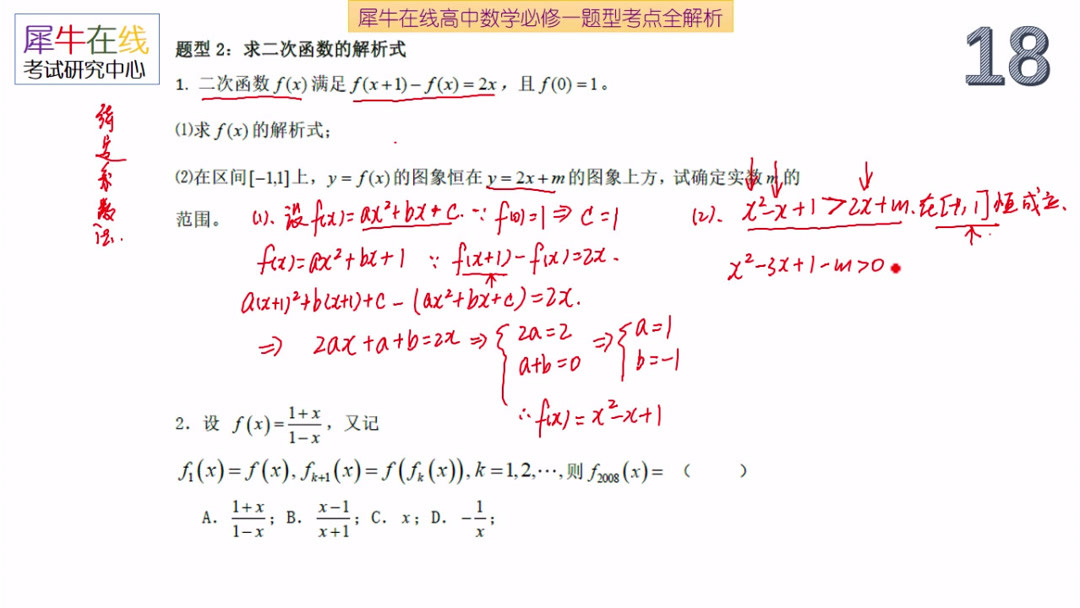 犀牛在线高中数学必修一题型考点全解析
犀牛在线
考试研究中心
18
题型 2：求二次函数的解析式
1. 二次函数 f(x) 满足 f(x+1)−f(x)=2x，且 f(0)=1。
⑴求 f(x) 的解析式；
⑵在区间[−1,1]上，y=f(x)的图象恒在 y=2x+m的图象上方，试确定实数 m 的
范围。
待定系数法.
(1). 设f(x)=ax²+bx+c. ∵ f(0)=1 ⇒ c=1
f(x)=ax²+bx+1 ∵ f(x+1)-f(x)=2x.
a(x+1)²+b(x+1)+c-(ax²+bx+c)=2x.
⇒ 2ax+a+b=2x ⇒ { 2a=2 a+b=0 ⇒ { a=1 b=-1
∴ f(x)=x²-x+1
(2). x²-x+1>2x+m.在[-1,1]恒成立.
x²-3x+1-m>0
2. 设 f(x)=(1+x)/(1−x)，又记
f₁(x)=f(x), fₖ₊₁(x)=f(fₖ(x)), k=1,2,⋯,则 f₂₀₀₈(x)=（ ）
A. (1+x)/(1−x)；B. (x−1)/(x+1)；C. x；D. −1/x；